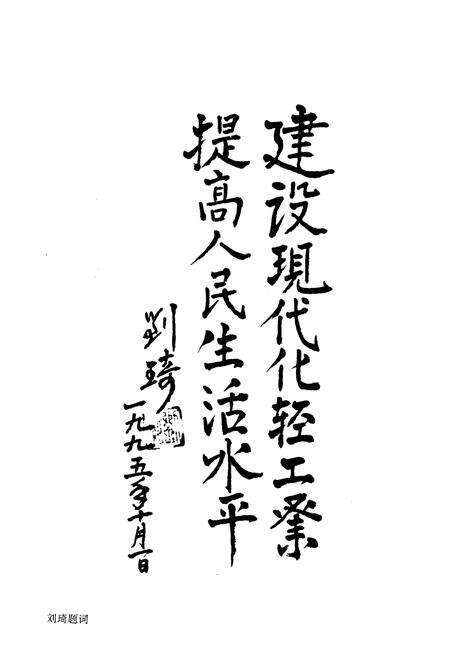 建设現代化轻工業
提高人民生活水平
劉琦
一九九五年十月一日
刘琦题词